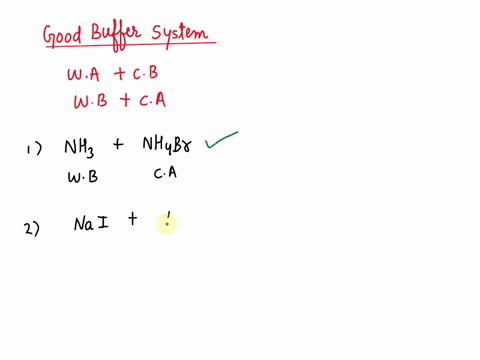 Good Buffer System
W.A + C.B
W.B + C.A
1) NH3 + NH4Br ✓
W.B C.A
2) NaI +